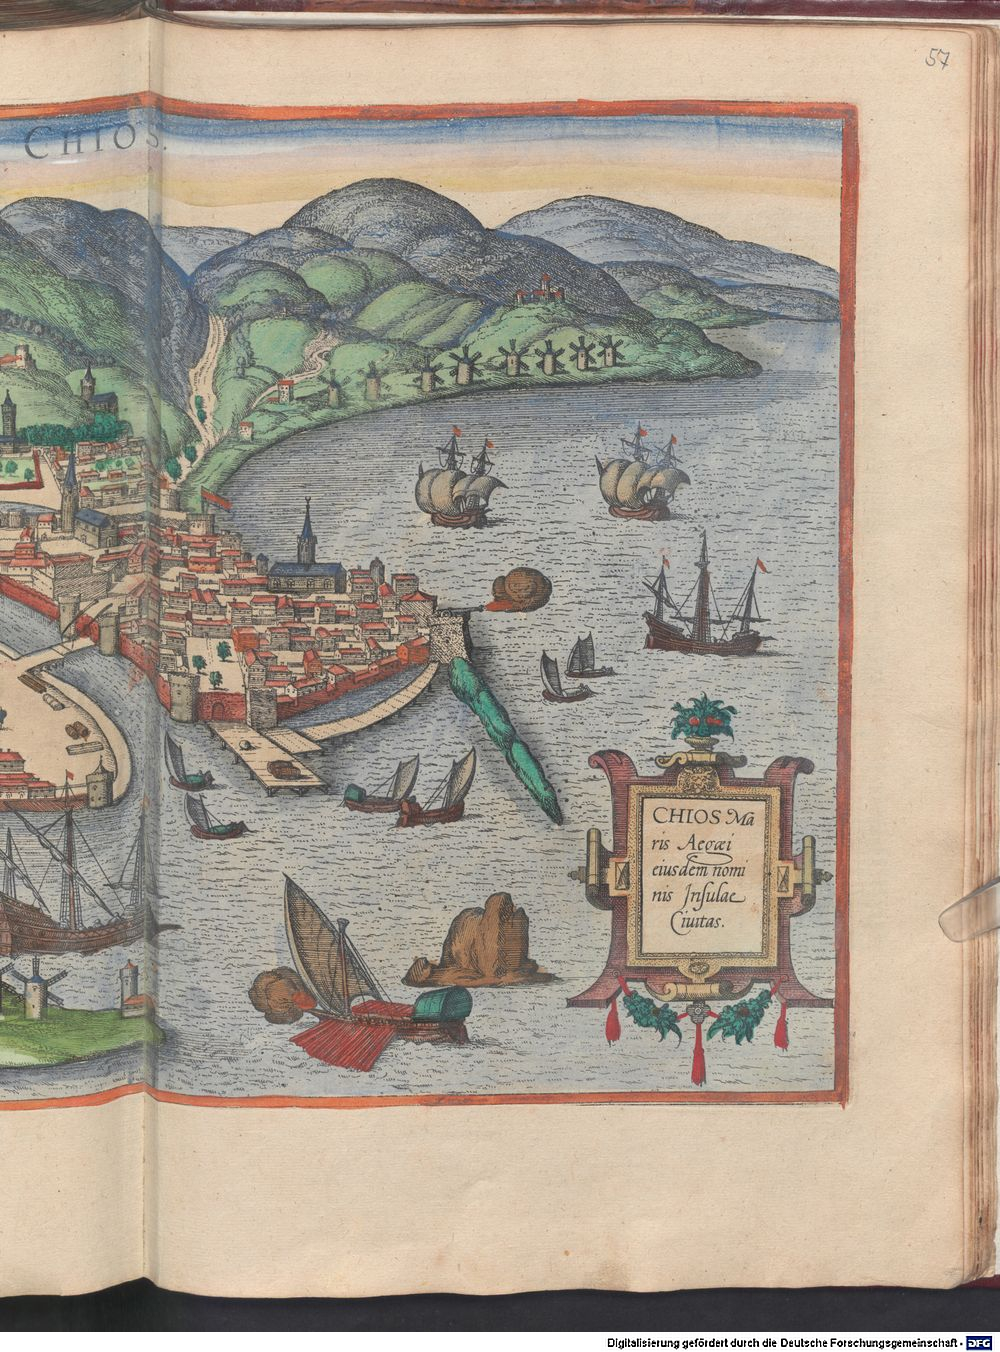 57
CHIOS.
CHIOS Ma
ris Aegæi
eiusdem nomi
nis Insulae
Ciuitas.
Digitalisierung gefördert durch die Deutsche Forschungsgemeinschaft - DFG